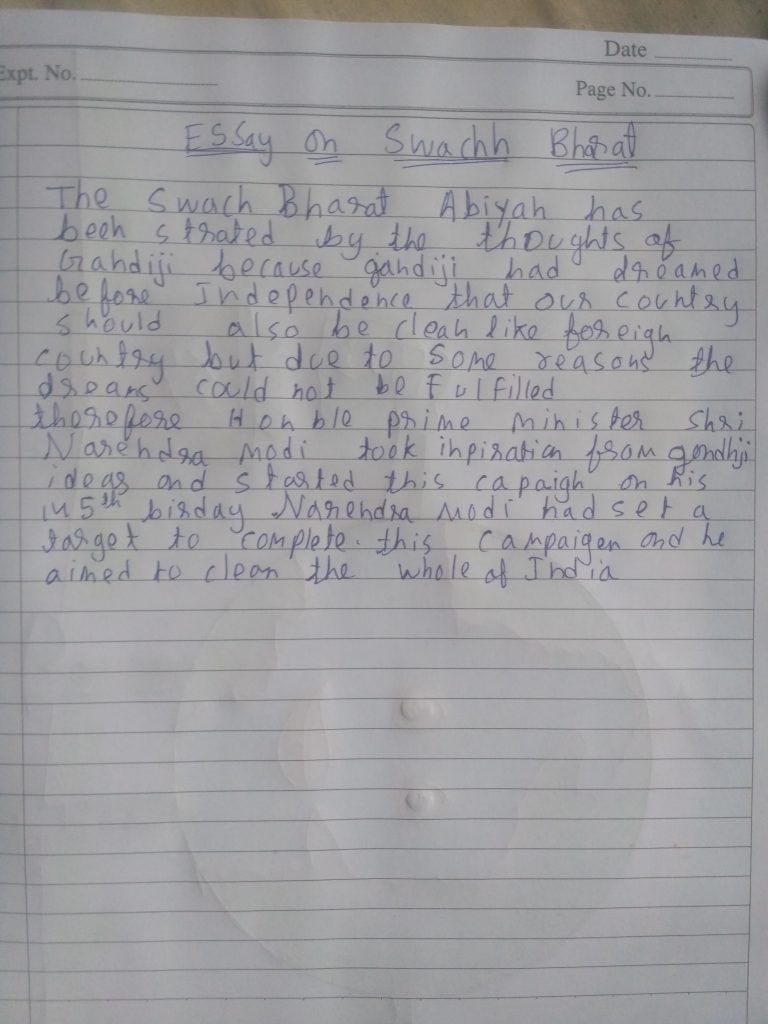 Date
Expt. No.
Page No.
ESSay on Swachh Bharat
The Swach Bharat Abiyan has
been strated by the thoughts of
Gandiji because gandiji had dreamed
before Independence that our country
should also be clean like foreign
country but due to some reasons the
dreams could not be Fulfilled
therefore Honble prime minister Shri
Narendra modi took inpiration from gandhji
ideas and started this capaigh on his
145th birday Narendra Modi had set a
target to complete. this campaigen and he
aimed to clean the whole of India